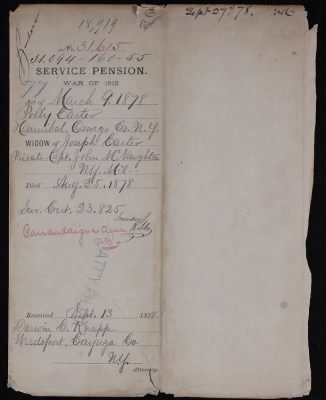 18,919
Sept 27th 78.
No. 31,615
31,094-160-55
SERVICE PENSION.
WAR OF 1812
Act of March 9, 1878
Polly Carter
Hannibal, Oswego Co. N.Y.
WIDOW of Joseph Carter
Private Capt. John McNaughton
NY. Mil.
Died Aug. 25. 1878
Sur. Cert. 23.825
Canandaigua
ATTY FILE
Received Sept. 13 1878.
Darwin C. Knapp
Weedsport, Cayuga Co.
NY.
Attorney